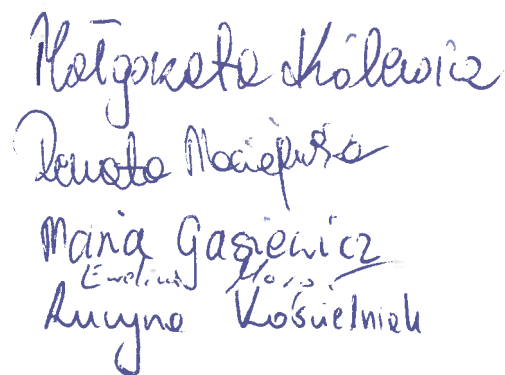 Małgorzata Królewicz
Renata Maciejewska
Maria Gasiewicz
Ewelina
Lucyna Kościelniak